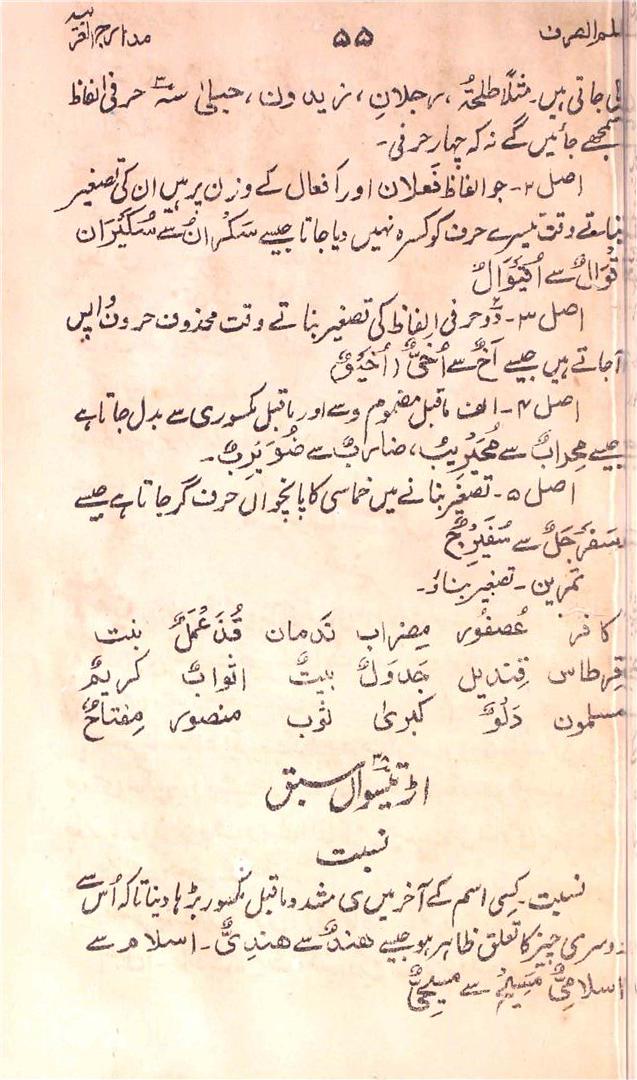 علم الصرف ۵۵ مدارج القرائید
لی جاتی ہیں۔ مثلاً طلحۃٌ، رجلانِ، زیدون، حبلیٰ سہ ۳ حرفی الفاظ
سمجھے جائیں گے نہ کہ چہار حرفی۔
اصل ۲۔ جو الفاظ فَعلان اور اَفعال کے وزن پر ہیں ان کی تصغیر
بناتے وقت تیسرے حرف کو کسرہ نہیں دیا جاتا جیسے سَکْرانٌ سے سُکَیْرَان
قْوَالٌ سے اُقَیْوَالٌ
اصل ۳۔ دو حرفی الفاظ کی تصغیر بناتے وقت محذوف حروف واپس
آجاتے ہیں جیسے اَخٌ سے اُخَیٌّ (اُخَیْوٌ)
اصل ۴۔ الف ماقبل مضموم و سے اور ماقبل مکسور ی سے بدل جاتا ہے
جیسے مِحرابٌ سے مُحَیْرِیْبٌ، ضاربٌ سے ضُوَیْرِبٌ۔
اصل ۵۔ تصغیر بنانے میں خماسی کا پانچواں حرف گر جاتا ہے جیسے
سَفَرْجَلٌ سے سُفَیْرِجٌ
تمرین۔ تصغیر بناؤ۔
کافر عُصفُور مِضراب نَدمان قُذَعْمَلٌ بنت
قِرطاس قِندیل جَدوَلٌ بیتٌ اثوابٌ کریمٌ
مسلمون دَلْوٌ کبریٰ ثوب منصور مِفتاحٌ
اڑتیسواں ۳۸ سبق
نسبت
نسبت۔ کسی اسم کے آخر میں ی مشدد ماقبل مکسور بڑہا دینا تاکہ اُس سے
دوسری چیز کا تعلق ظاہر ہو جیسے ھندٌ سے ھندِیٌّ۔ اسلام سے
اسلامِیٌّ مَسِیحٌ سے مسِیحِیٌّ